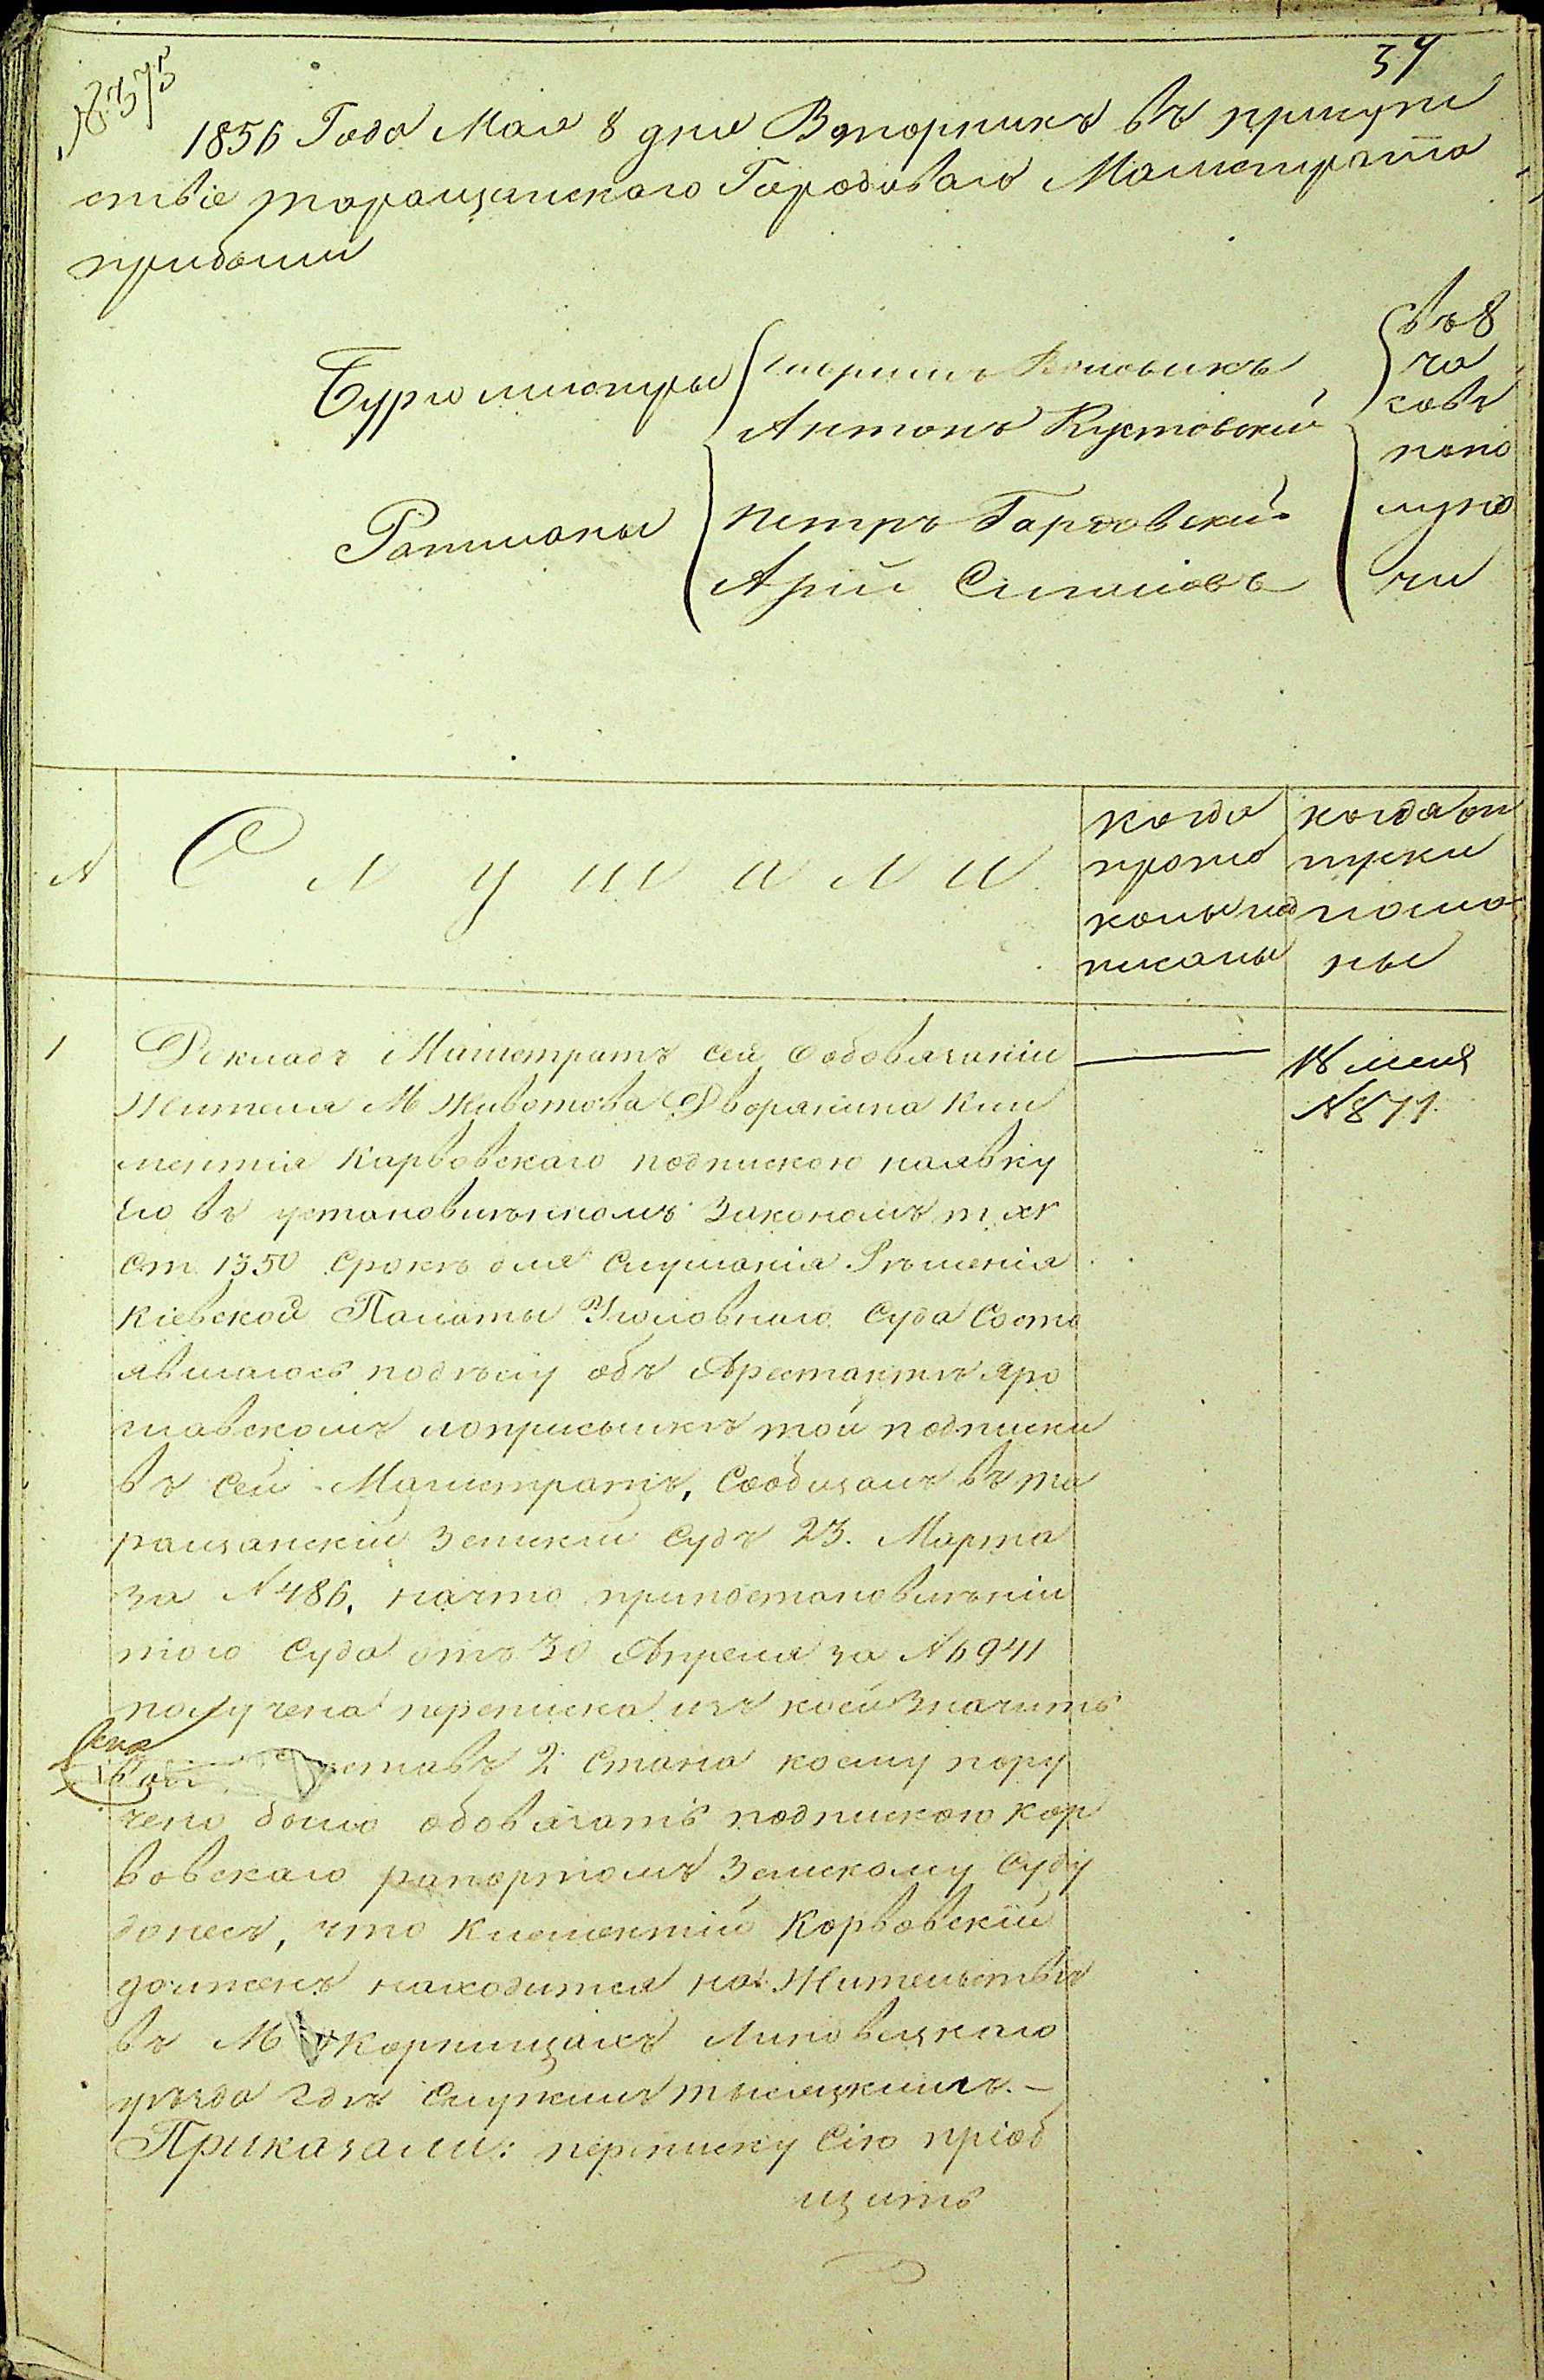 № 375
34
1856 Года Мая 8 дня Вторникъ въ присут
ствіе таращанскаго Городоваго Магистрата
прибыли
Бургомистры
Антонъ Кустовскій
Ратманы
петръ Гарховскій
Арій
въ 8
ча
совъ
попо
луно
чи
№
Слушали
когда
прото
колы под
писаны
когда от
пуски
посла
ны
1
Докладъ Магистратъ сей о обовязаніи
Жителя М Животова Дворянина Кли
ментія Карвовскаго подпискою наявку
Его въ установленномъ Закономъ т XV
Ст. 1350 Срокъ для Слушанія Рѣшенія
Кіевской Палаты Уголовнаго Суда Состо
явшагося подѣлу объ Арестантѣ Яро
славскомъ иоприсылкѣ той подписки
въ Сей Магистратъ, Сообщалъ въ та
ращанскій Земскій Судъ 23. Марта
за № 486, начто припостановленіи
того Суда отъ 30 Апреля за № 6941
получена переписка изъ коей Значитъ
2 Стана коему пору
чено было обовязать подпискою Кар
вовскаго рапортомъ Земскому Суду
донесъ, что Климентій Карвовскій
долженъ находится на Жительствѣ
въ М Липовецкаго
уѣзда гдѣ Служилъ тысяцкимъ. –
Приказали: переписку Сію пріоб
щить
18 мая
№ 871